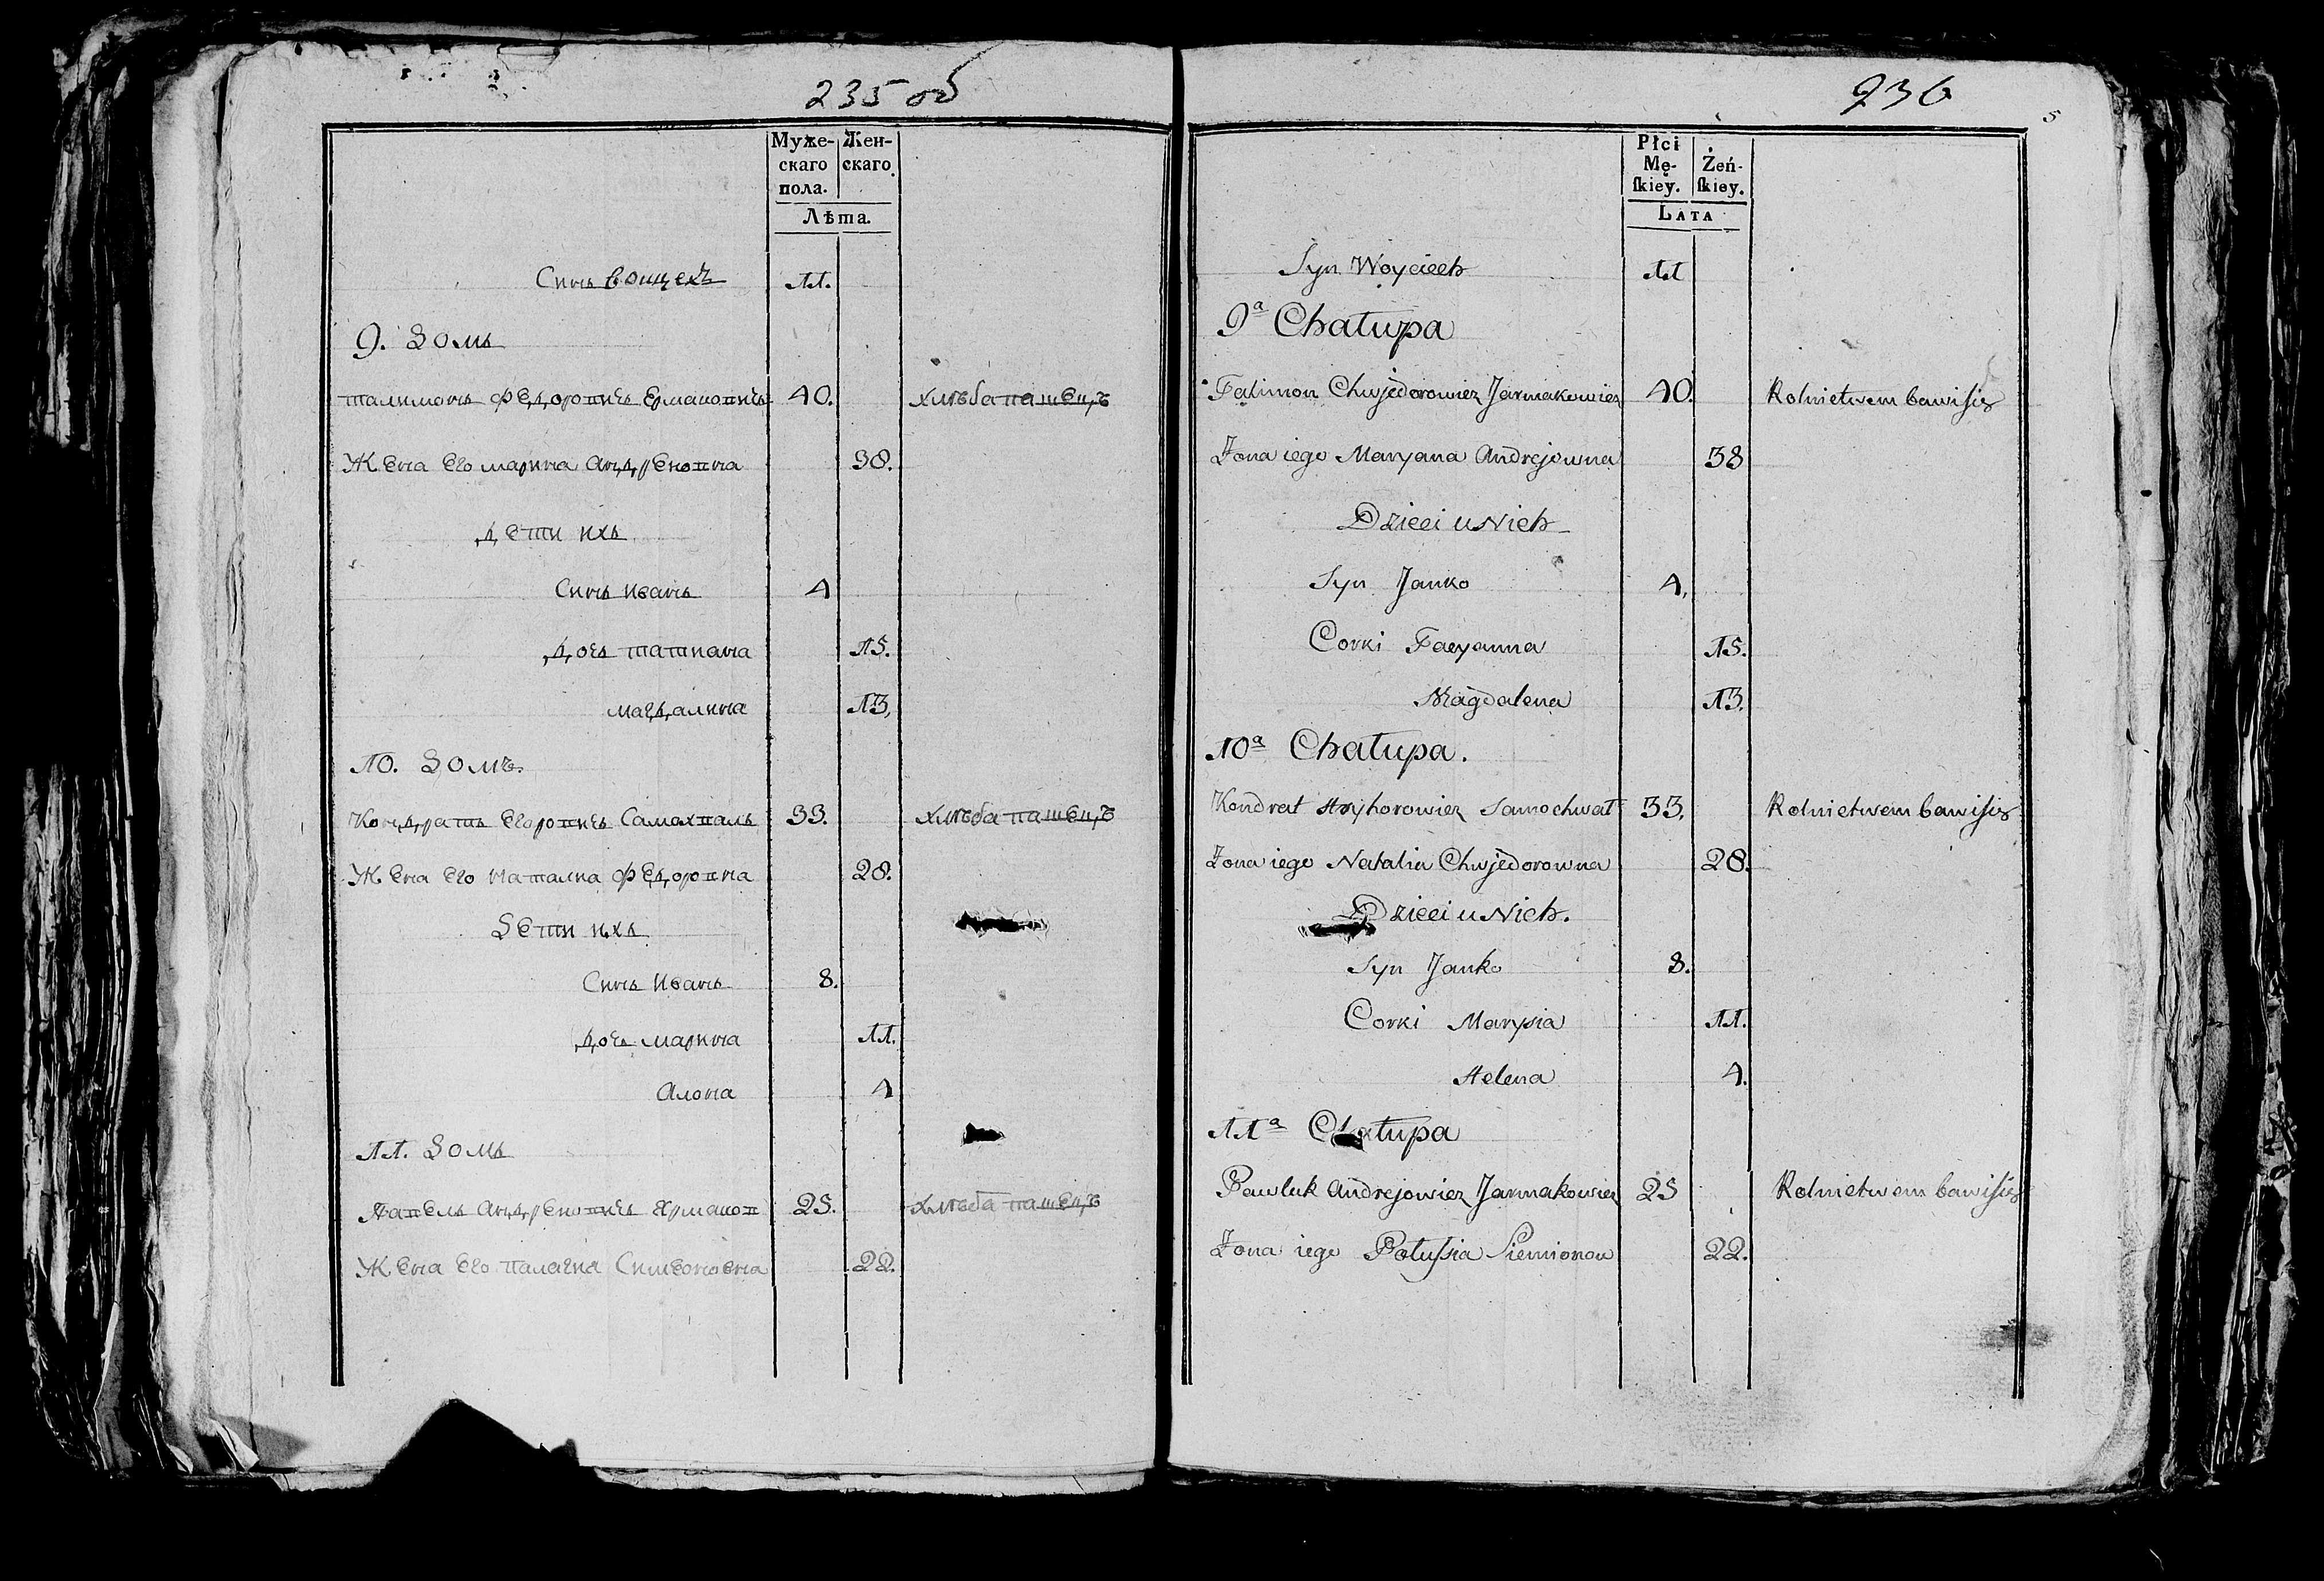 235 об
Муже-
скаго
пола.
Жен-
скаго.
Лѣта.
Синъ Воицехъ 11.
9. Домъ
Талимонъ Федоровичъ Ермаковичъ 40. хлѣбапашецъ
Жена его Марина Андреновна 38.
Дети ихъ
Синъ Иванъ 4
Дочь Татиана 15.
Магдалина 13,
10. Домъ.
Кондратъ Егоровичъ Самахвалъ 33. хлѣбапашецъ
Жена его Наталиа Федоровна 28.
Дети ихъ
Синъ Иванъ 8.
Дочь Марина 11.
Алона 4
11. Домъ
Павелъ Андреновичъ Ярмаков 25. хлѣбапашецъ
Жена его Палагиа Симеоновна 22.
236
5
Płci
Mę-
ſkiey.
Żeń-
ſkiey.
LATA
Syn Woyciech 11
9a Chałupa
Talimon Chwjedorowicz Jarmakowicz 40. Rolnictwem bawi się
Żona iego Maryana Andrejowna 38
Dzieci u Nich
Syn Janko 4,
Corki Tacyanna 15.
Magdalena 13.
10a Chałupa.
Kondrat Hryhorowicz Samochwał 33. Rolnictwem bawi się
Żona iego Natalia Chwjedorowna 28.
Dzieci u Nich.
Syn Janko 8.
Corki Marysia 11.
Helena 4.
11a Chałupa
Pawluk Andrejowicz Jarmakowicz 25 Rolnictwem bawi się
Żona iego Połuſsia Siemionow 22.